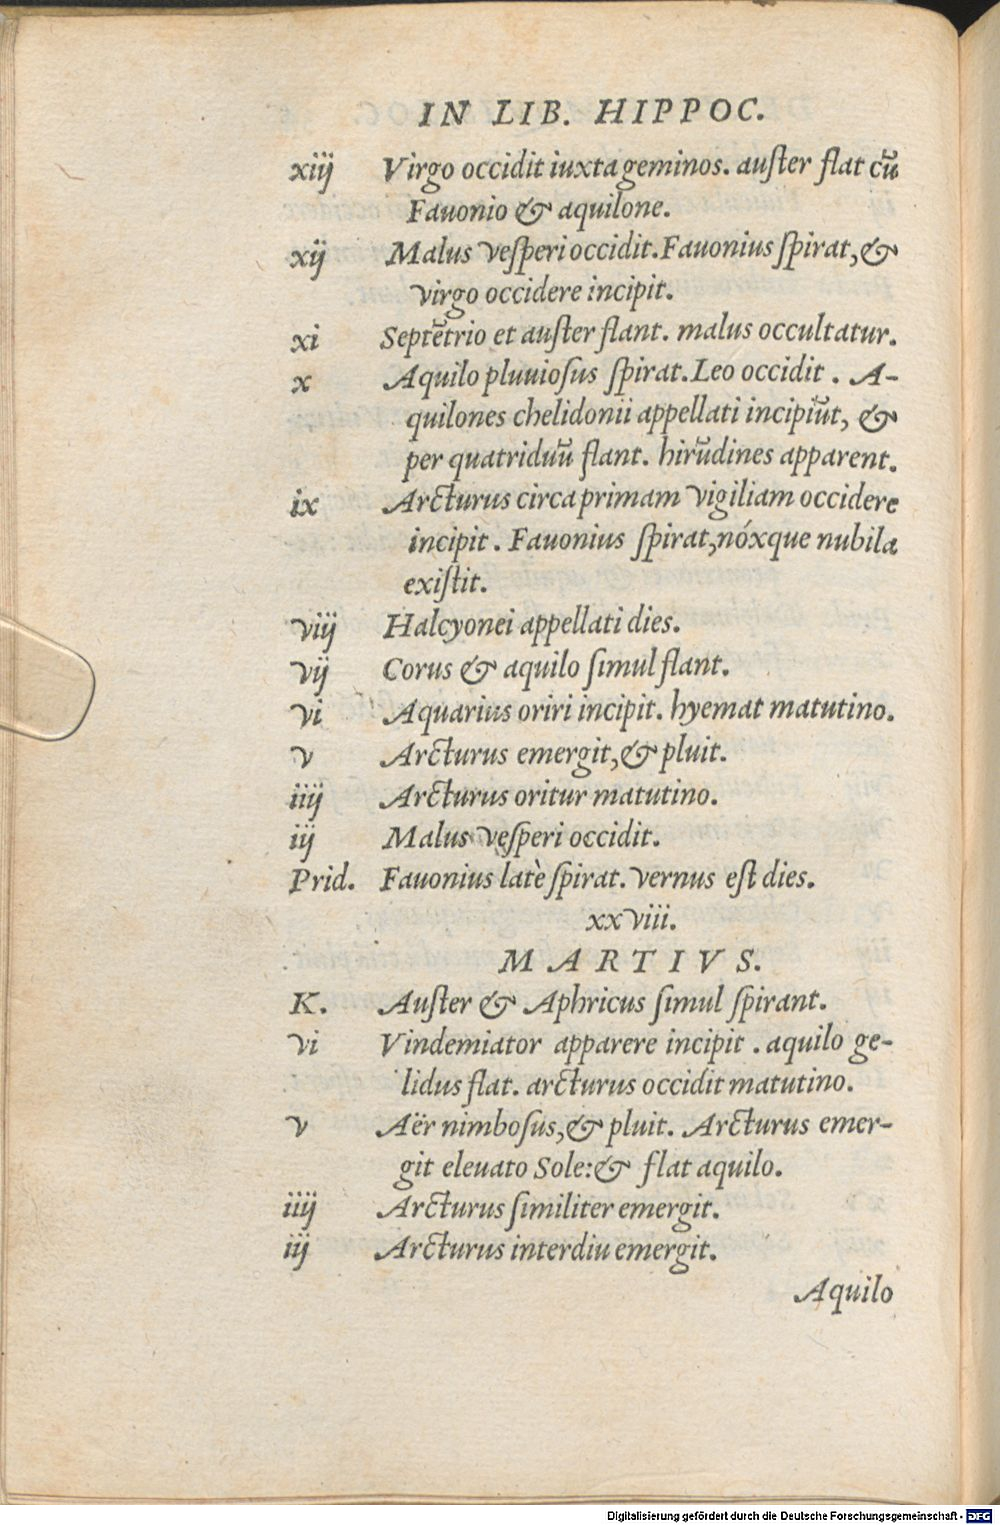 IN LIB. HIPPOC.
xiij Virgo occidit iuxta geminos. auſter flat cũ
Fauonio & aquilone.
xij Malus veſperi occidit. Fauonius ſpirat, &
virgo occidere incipit.
xi Septẽtrio et auſter flant. malus occultatur.
x Aquilo pluuioſus ſpirat. Leo occidit . A-
quilones chelidonii appellati incipiũt, &
per quatriduũ flant. hirũdines apparent.
ix Arcturus circa primam vigiliam occidere
incipit . Fauonius ſpirat, nóxque nubila
exiſtit.
viij Halcyonei appellati dies.
vij Corus & aquilo ſimul flant.
vi Aquarius oriri incipit. hyemat matutino.
v Arcturus emergit, & pluit.
iiij Arcturus oritur matutino.
iij Malus veſperi occidit.
Prid. Fauonius latè ſpirat. vernus eſt dies.
xxviii.
MARTIVS.
K. Auſter & Aphricus ſimul ſpirant.
vi Vindemiator apparere incipit . aquilo ge-
lidus flat. arcturus occidit matutino.
v Aër nimboſus, & pluit. Arcturus emer-
git eleuato Sole: & flat aquilo.
iiij Arcturus ſimiliter emergit.
iij Arcturus interdiu emergit.
Aquilo
Digitalisierung gefördert durch die Deutsche Forschungsgemeinschaft - DFG